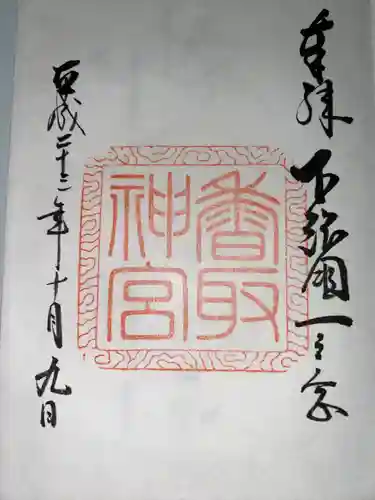 奉拝
下総国一之宮
香取神宮
平成二十二年十月九日